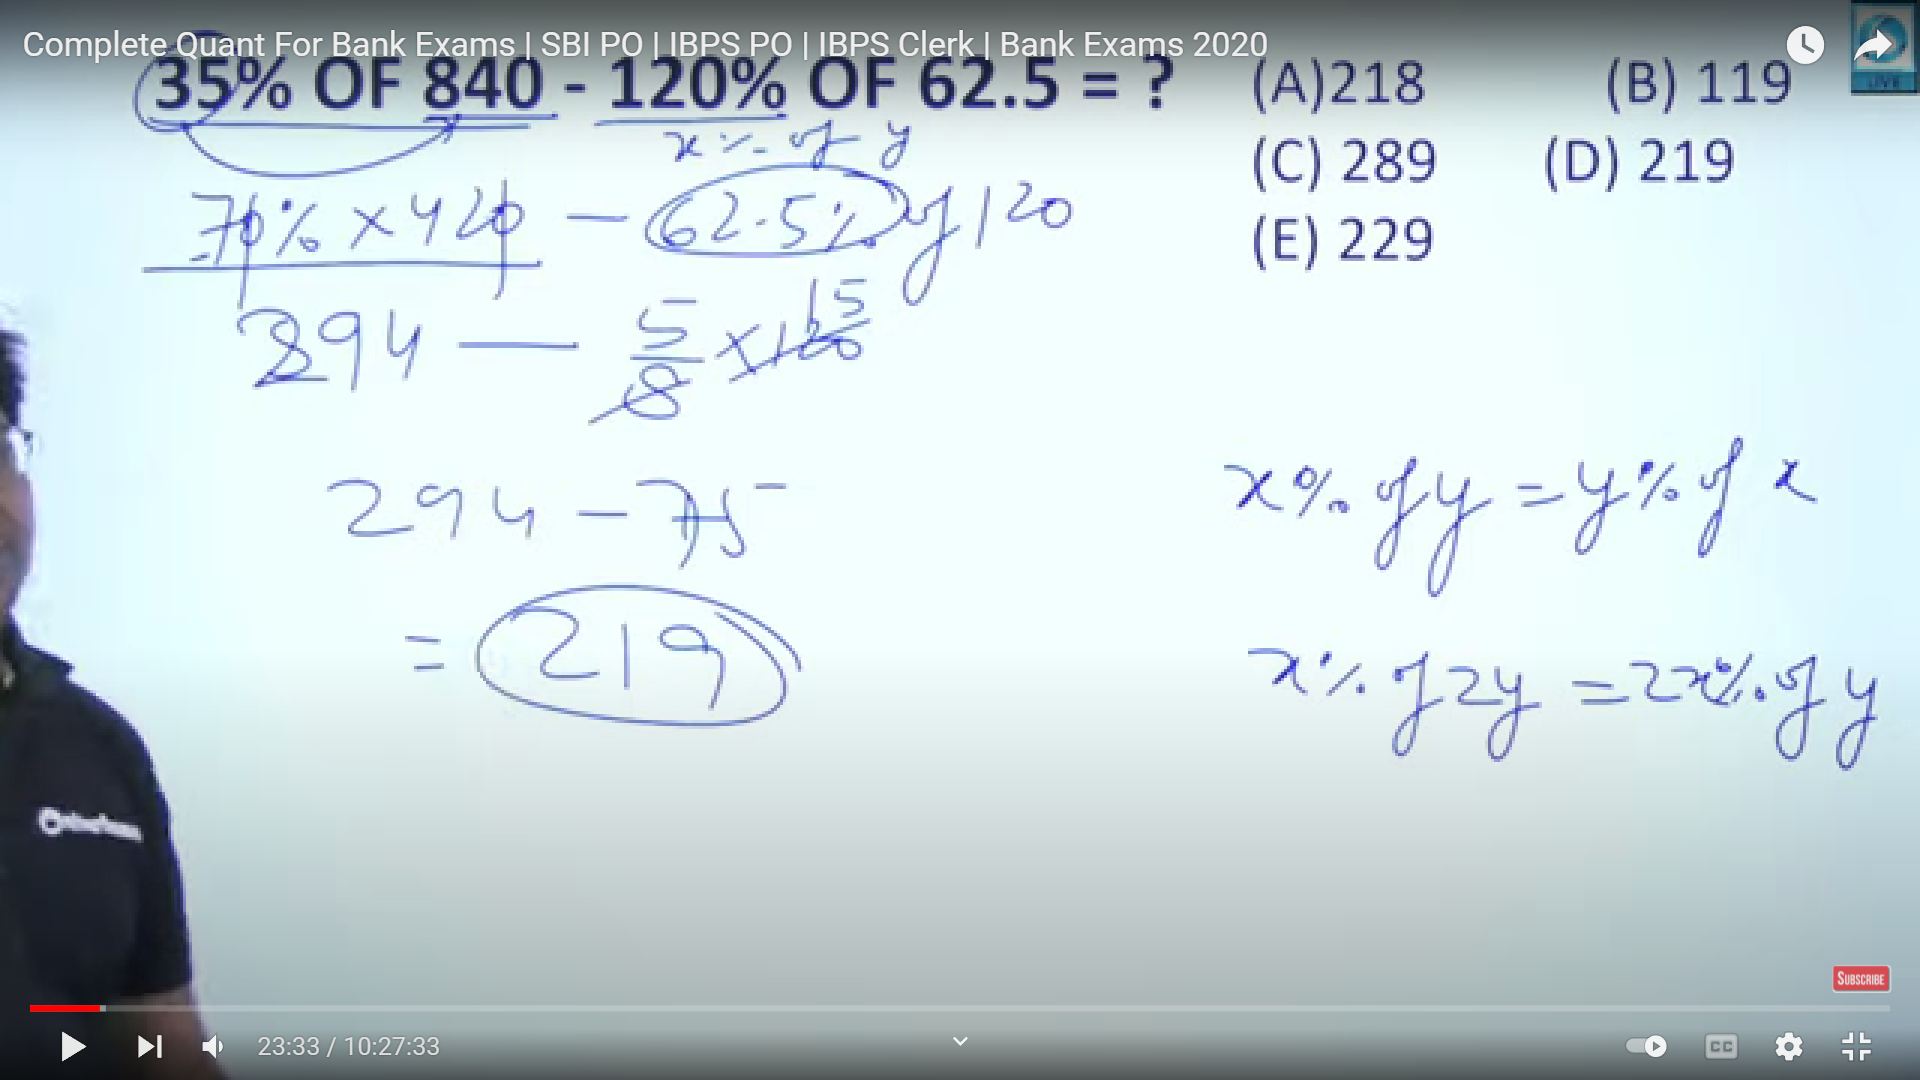 Complete Quant For Bank Exams | SBI PO | IBPS PO | IBPS Clerk | Bank Exams 2020
35% OF 840 - 120% OF 62.5 = ?
(A)218 (B) 119
(C) 289 (D) 219
(E) 229
x% of y
70% × 420 - 62.5% of 120
294 - 5/8 × 120 15
294 - 75
= 219
x% of y = y% of x
x% of 2y = 2x% of y
LIVE
SUBSCRIBE
23:33 / 10:27:33
CC